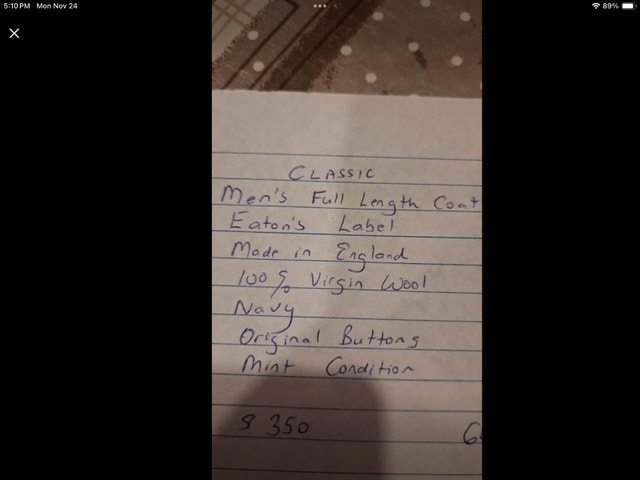 5:10 PM Mon Nov 24
89%
CLASSIC
Men's Full Length Coat
Eaton's Label
Made in England
100% Virgin Wool
Navy
Original Buttons
Mint Condition
$ 350